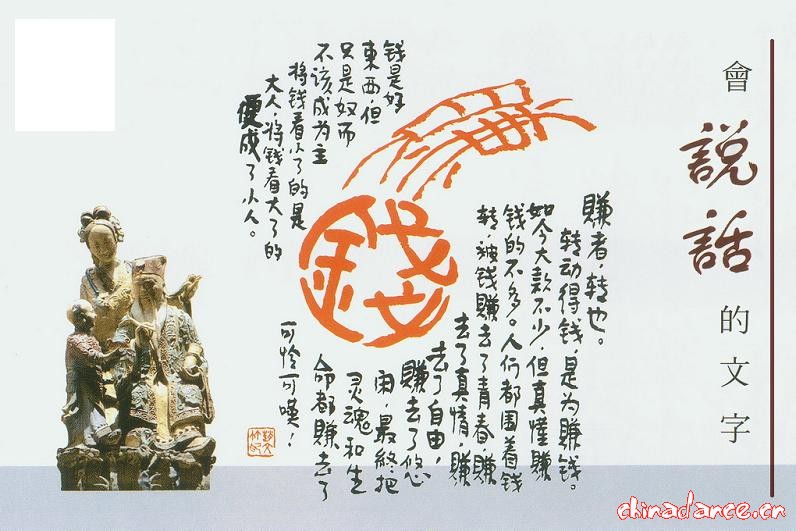 會說話的文字
賺者，转也。
转动得钱，是为賺钱。
如今大款不少，但真懂賺
钱的不多。人们都围着钱
转，被钱賺去了青春，賺
去了真情，賺
去了自由，
賺去了悠
闲，最終把
灵魂和生
命都賺去了
可怜可嘆！
錢
钱是好
東西，但
只是奴而
不该成为主
将钱看小了的是
大人，将钱看大了的
便成了小人。
chinadance.cn